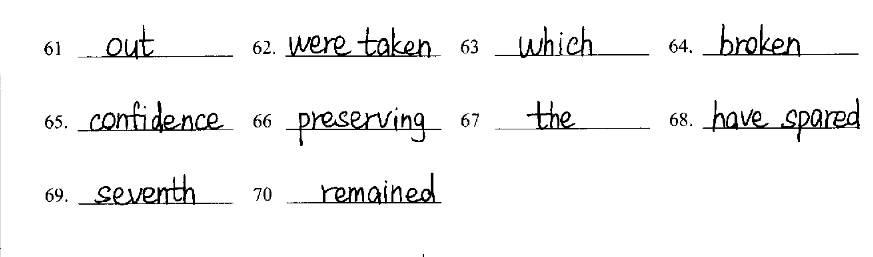 61 out 62. were taken 63 which 64. broken
65. confidence 66 preserving 67 the 68. have spared
69. seventh 70 remained